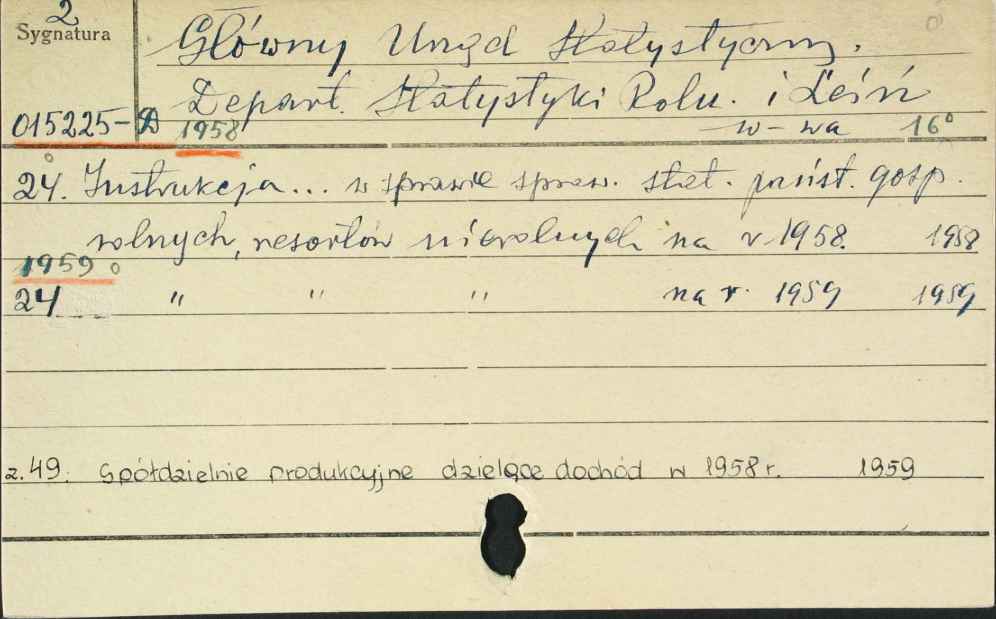 2
Sygnatura
Główny Urząd Statystyczny.
Depart. Statystyki Roln. i Leśn
015225-D 1958 W-wa 16°
24. Instrukcja... w sprawie spraw. stat. państ. gosp.
rolnych, resortów nierolnych na r. 1958. 1958
1959
24 " " " na r. 1959 1959
z.49. Spółdzielnie produkcyjne dzielące dochód w 1958 r. 1959